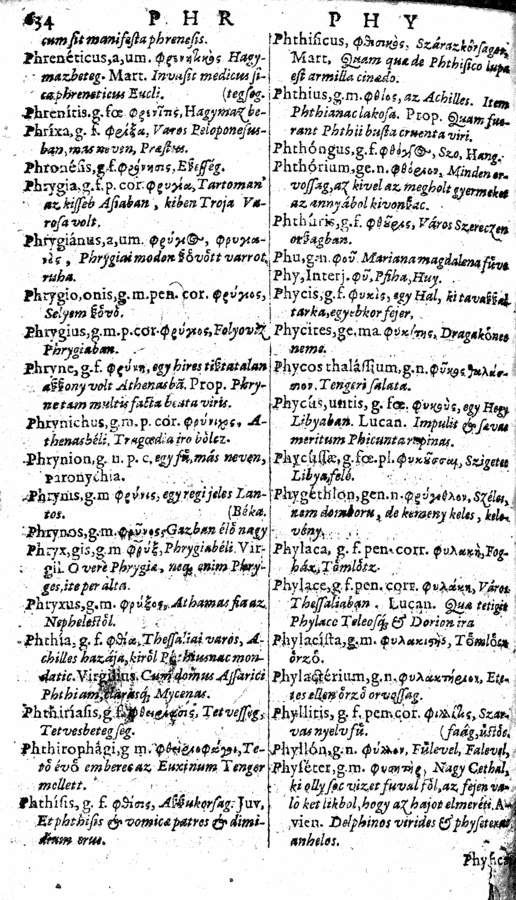 634 PHR PHY
cum sit manifesta phrenesis.
Phrenéticus, a, um. φρενητικὸς Hagy-
mazbeteg. Mart. Invasit medicus si-
ca phreneticus Eucli. (tegség.
Phrenítis, g. fœ. φρενῖτης, Hagymaz be-
Phríxa, g. f. φρίξα, Varos Peloponesus-
ban, mas neven, Præstus.
Phronésis, g. f. φρόνησις, Eszesség.
Phrygia, g. f. p. cor. φρυγία, Tartomań
az kisseb Asiaban, kiben Troja Va-
rosa volt.
Phrygiánus, a, um. φρύγιος, φρυγια-
νὸς, Phrygiai modon szövött varrot,
ruha.
Phrygio, onis, g. m. pen. cor. φρύγιος,
Selyem szövö.
Phrygius, g. m. p. cor. φρύγιος, Folyoviz
Phrygiaban.
Phryne, g. f. φρύνη, egy hires tisztatalan
asszony volt Athenasbā. Prop. Phry-
ne tam multis facta beata viris.
Phrynichus, g. m. p. cor. φρύνιχος, A-
thenasbéli, Tragœdia iro bölcz.
Phrynion, g. n. p. c, egy fű, más neven,
Paronychia.
Phrynis, g. m φρύνις, egy regi jeles Lan-
tos. (Béka.
Phrynos, g. m. φρῦνος, Gazban élö nagy
Phryx, gis, g. m φρὺξ, Phrygiabéli. Vir-
gil. O verè Phrygiæ, neq; enim Phry-
ges, ite per alta.
Phryxus, g. m. φρύξος, Athamas fia az
Nephelestöl.
Phthía, g. f. φθία, Thessaliai varos, A-
chilles hazája, kiröl Phthiusnac mon-
datic. Virgilius. Cum domus Assarici
Phthiam, clarasq; Mycenas.
Phthiriasis, g. f. φθειρίασις, Tetvesseg,
Tetvesbetegseg.
Phthirophági, g m. φθειροφάγοι, Te-
tö évö emberec az Euxinum Tenger
mellett.
Phthísis, g. f. φθίσις, Aszszukorsag. Juv.
Et phthisis & vomicæ patres & dimi-
dium crus.
Phthísicus, φθισικὸς, Száraz körsagos,
Mart. Quam quæ de Phthisico lupa
est armilla cinædo.
Phthius, g. m. φθίος, az Achilles. Item
Phthianac lakosa. Prop. Quam fue-
rant Phthii busta cruenta viri.
Phthóngus, g. f. φθόγγος, Szo, Hang.
Phthórium, ge. n. φθόριον, Minden or-
vossag, az kivel az megholt gyermeket
az annyából kivonszac.
Phthúris, g. f. φθοῦρις, Város Szereczen
orszagban.
Phu, g. n. φοῦ. Mariana magdalena füve
Phy, Interj. φῦ, Pfiha, Huy.
Phycis, g. f. φυκὶς, egy Hal, ki tavaszszal
tarka, egyebkor fejer,
Phycites, ge, ma φυκίτης, Dragakőnec
neme.
Phycos thalássium, g. n. φῦκος θαλάσ-
σιον. Tengeri salata.
Phycus, untis, g. fœ. φυκοῦς, egy Hegy
Libyaban. Lucan. Impulit & sævas
meritum Phicunta rapinas.
Phycussæ, g. fœ. pl. φυκοῦσσαι, Szigetec
Libya felé.
Phygéthlon, gen. n. φύγεθλον, Széles,
nem domboru, de kemeny keles, kele-
vény.
Phylaca, g. f. pen. corr. φυλακὴ, Fog-
ház, Tömlötz.
Phylace, g. f. pen. corr. φυλάκη, Város
Thessaliaban. Lucan. Quæ tetigit
Phylace Teleosq; & Dorion ira
Phylacísta, g. m. φυλακιστὴς, Tömlötz
örzö.
Phylactérium, g. n. φυλακτήριον, Ete-
tes ellen örzö orvossag.
Phyllitis, g. f. pen. cor. φυλλῖτις, Szar-
vas nyelv fű. (faág, üstöke.
Phyllón, g. n. φύλλον, Fülevel, Falevel,
Physéter, g. m. φυσητὴρ, Nagy Cethal,
ki olly soc vizet fuval föl, az fejen va-
lo ket likbol, hogy az hajot elmeréti. A-
vien. Delphinos virides & physeteras
anhelos.
Physica